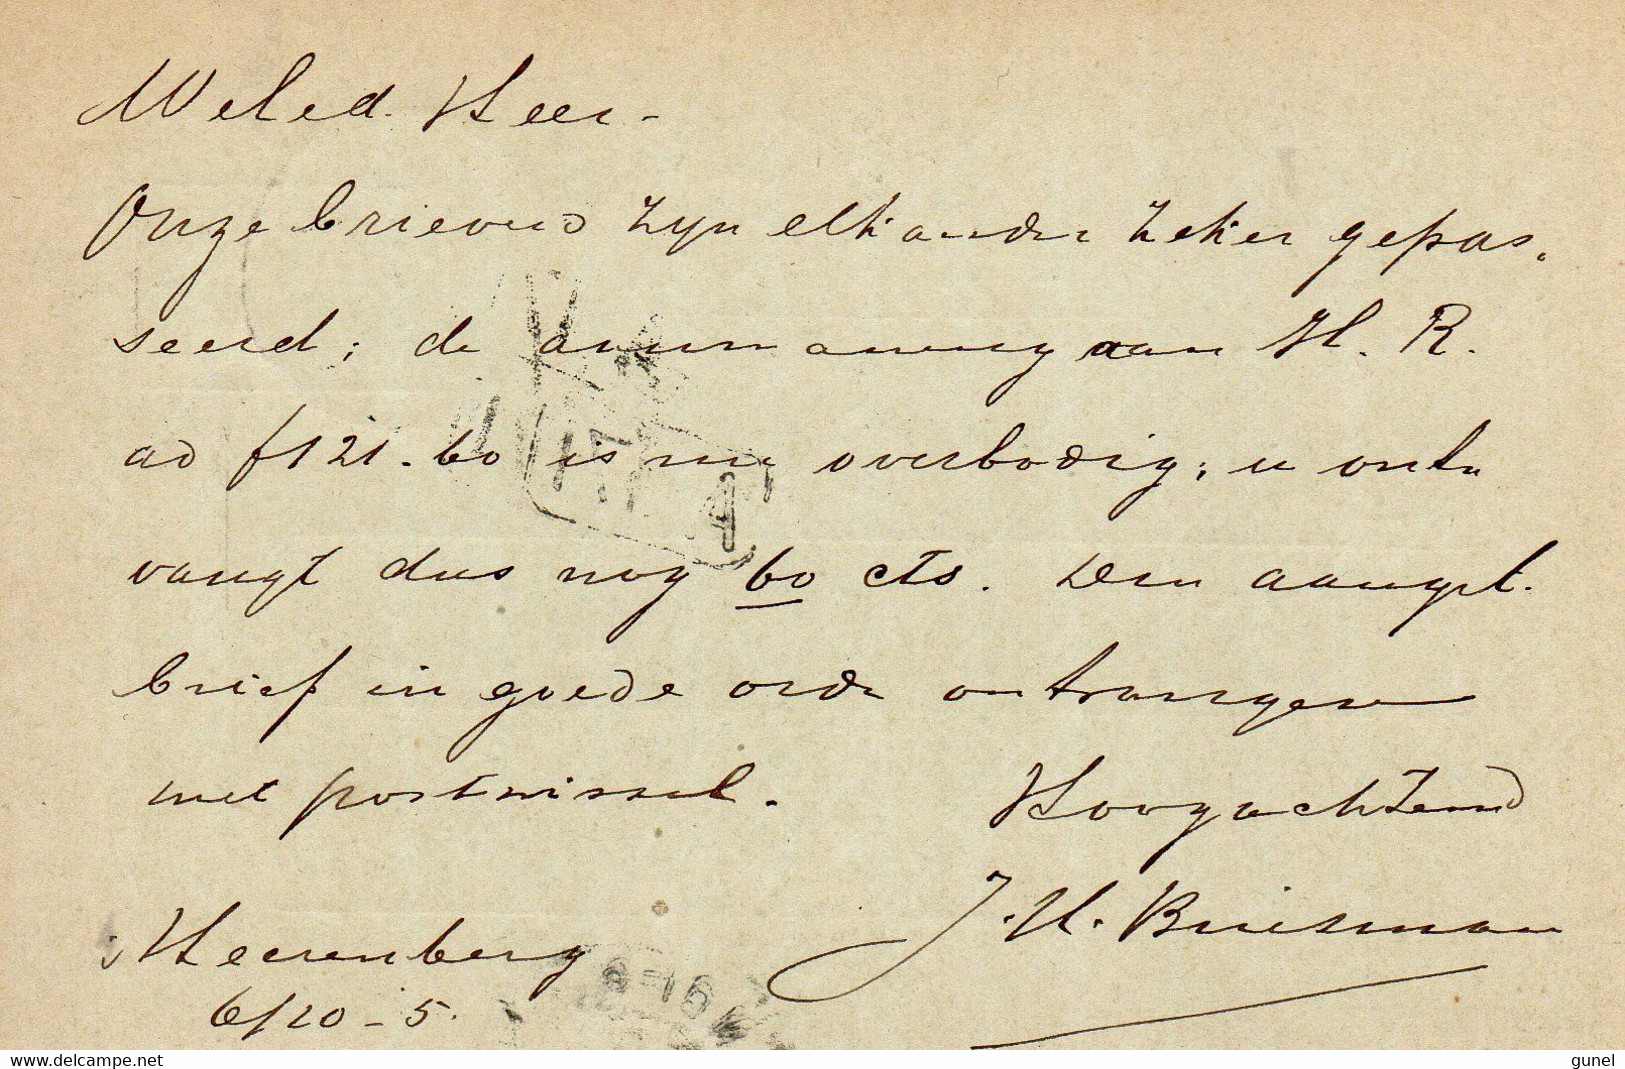 Weled. Heer -
Onze brieven zijn elkander zeker gepas,
seerd; de aanmaning aan H. R.
ad f 121.60 is nu overbodig; u ont-
vangt dus nog 60 cts. Den aanget.
brief in goede orde ontvangen
met postwissel.
Hoogachtend
J. H. Buisman
's Heerenberg
6/10 - 5.
www.delcampe.net
gunel